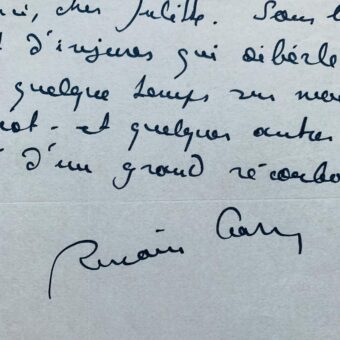 ci, cher Juliette. Sans l
d'injures qui déferle
quelque temps sur mes
mot - et quelques autres
d'un grand réconfo
Romain Gary